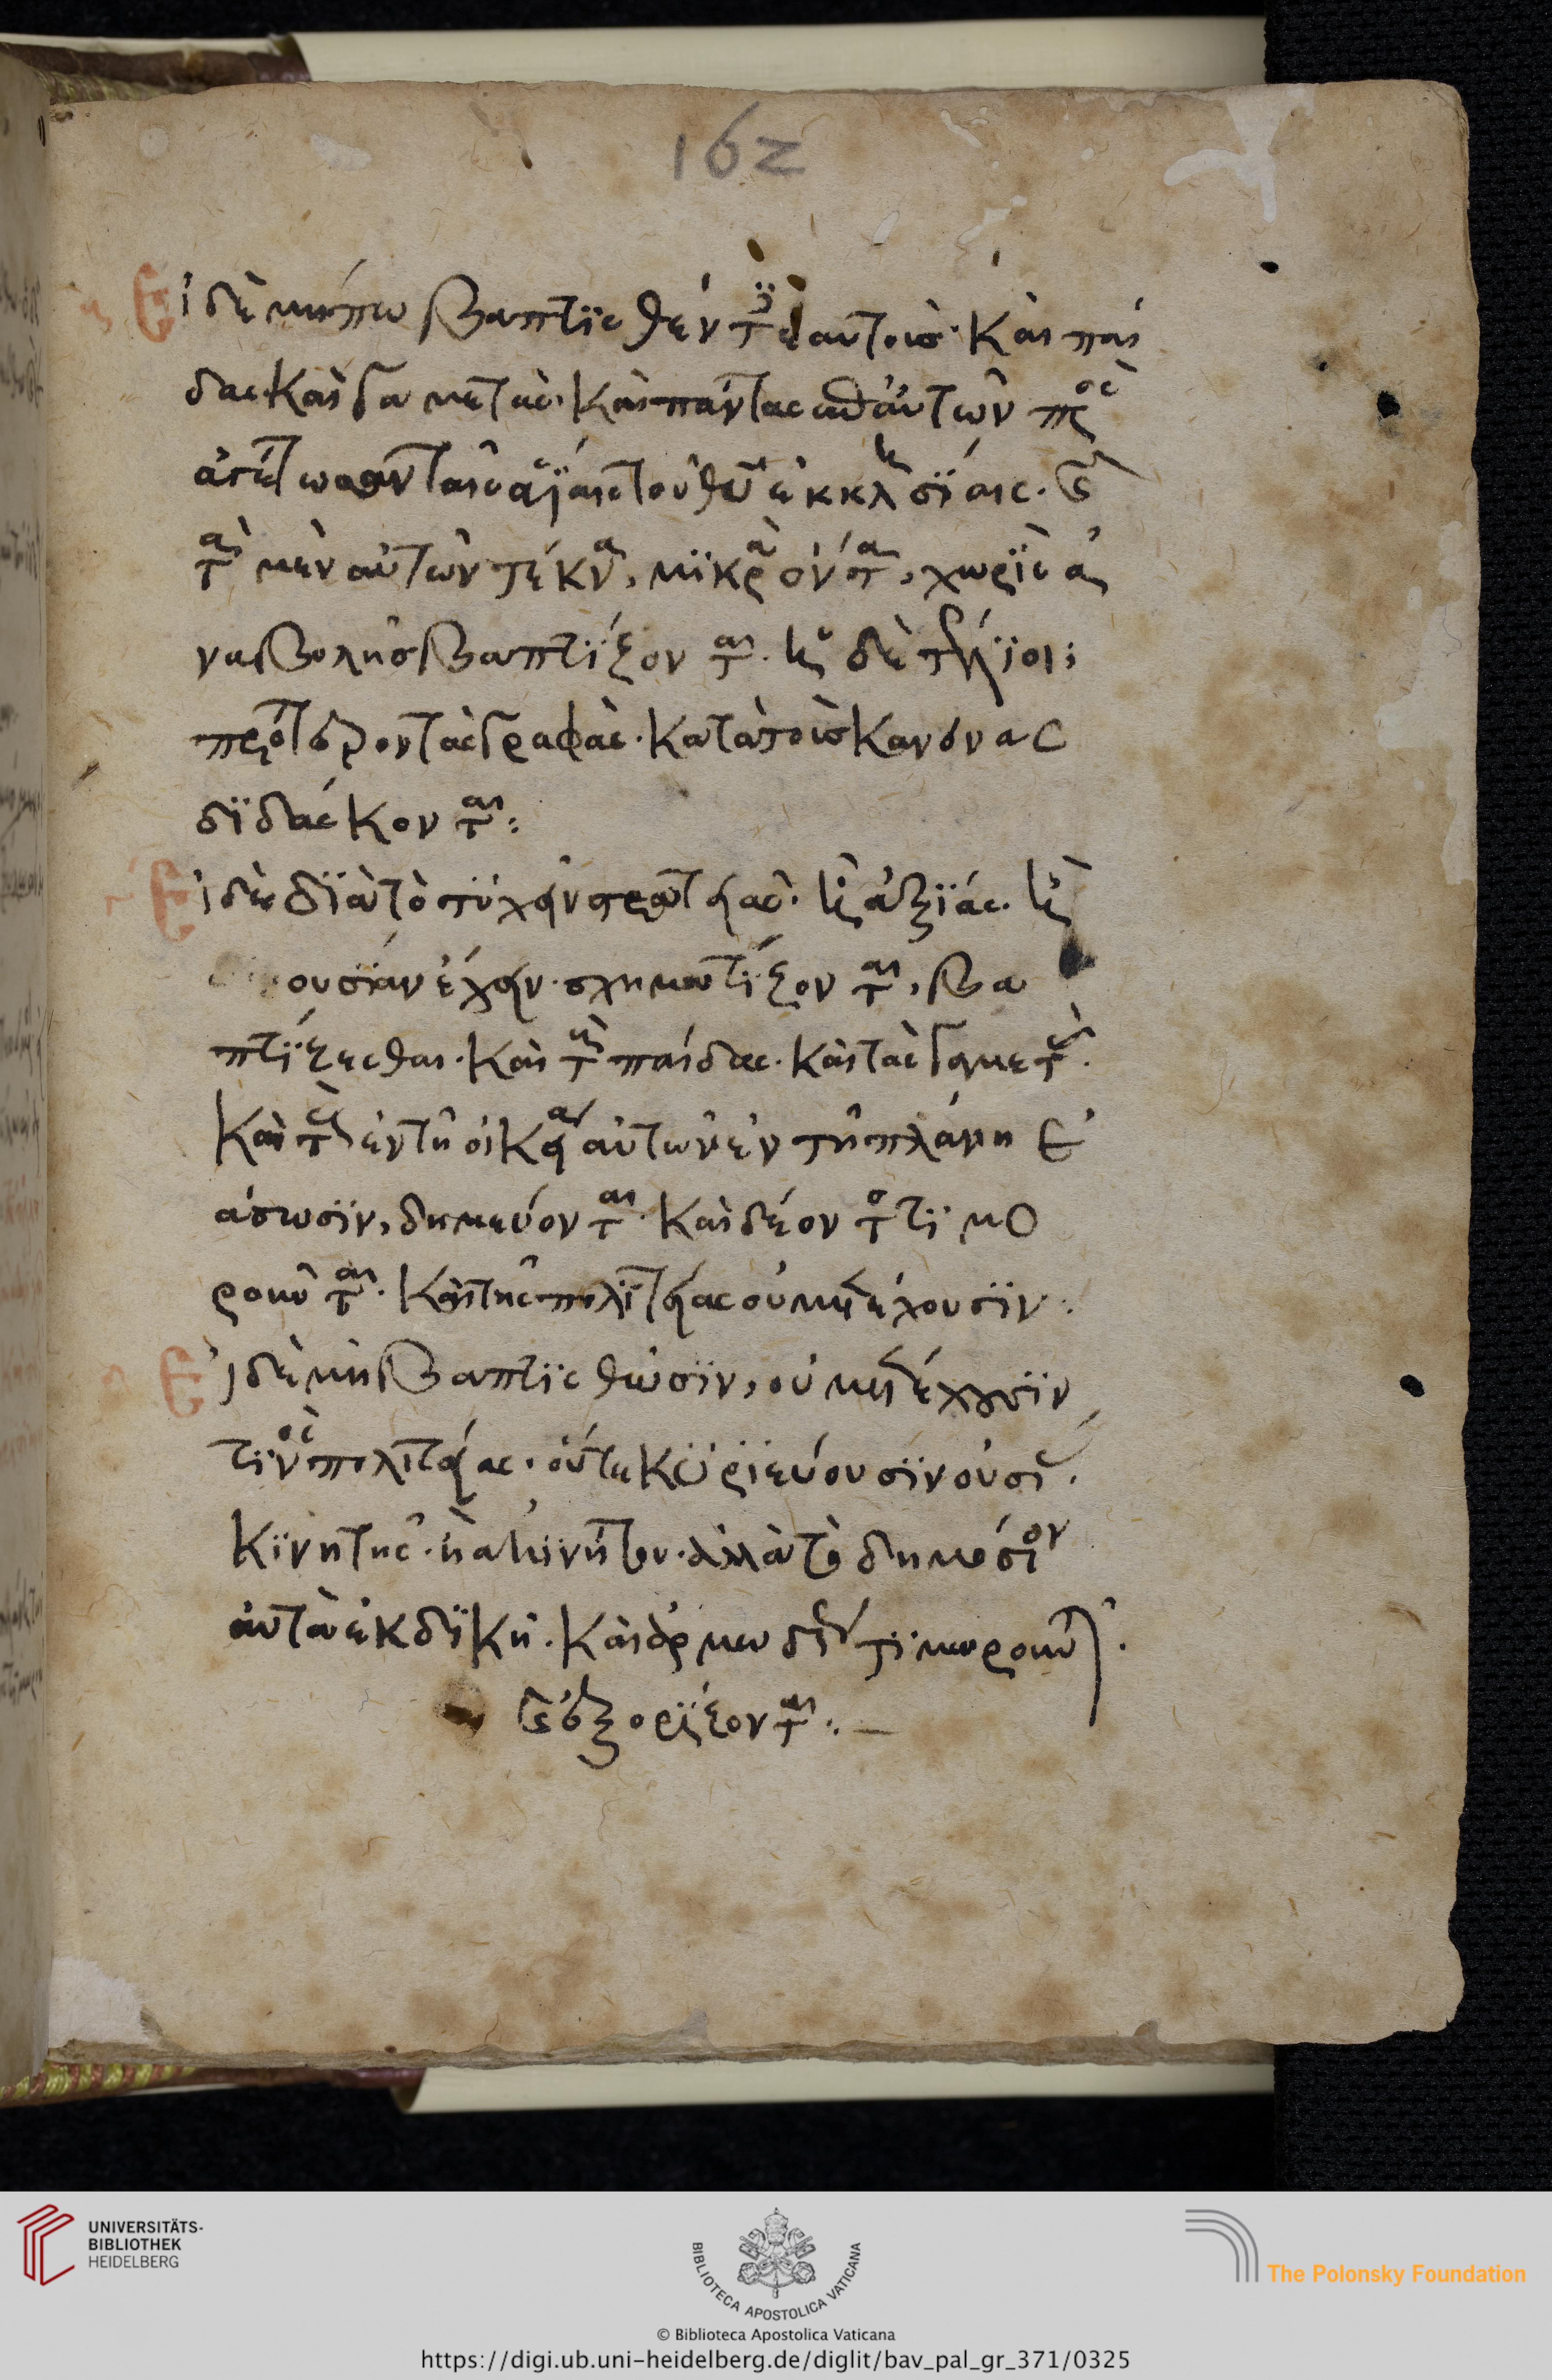 162
Εἰ δὲ μήπω βαπτϊσθέντ ἑαυτοὺς· καὶ παῖ
δας καὶ γαμετὰς· καὶ πάντας αὐτῶν πρὸς
ταῖς ἁγΐαις τοῦ θῦ ἐκκλησΐαις·
τὰ μὲν αὐτῶν τέκνα, μϊκρὰ ὄντα, χωρϊς ἀ
ναβολῆς βαπτΐζονται. οἱ δὲ τέλϊοι;
πρότερον τὰς γραφὰς· κατὰ τοὺς κανόνας
δϊδάσκονται:
Εἰ δὲ δϊὰ τὸ τύχειν στρατείας· ἢ ἀξϊάς· ἢ
ουσίαν ἔχειν· σχηματΐζονται, βα
πτΐζεσθαι· καὶ τοὺς παῖδας· καὶ τὰς γαμετὰς·
καὶ τοὺς ἐν τῆ οἰκεία αὐτῶν ἐν τῆ πλάνη ἐ
άσωσϊν, δημεύονται· καὶ δέοντος τϊμο
ροῦνται· καὶ τῆς πολϊτείας οὐ μετέχουσϊν:
Εἰ δὲ μὴ βαπτϊσθῶσϊν, οὐ μετέχουσϊν
τϊνὸς πολϊτείας· οὔτε κϋρϊεύουσϊν οὐσΐας
κϊνητῆς· ἢ ἀκϊνήτου· ἀλλὰ τὸ δημόσϊον
αὐτὰ ἐκδϊκῆ· καὶ τϊμωροῦνται·
καὶ ἐξορΐζονται:—
UNIVERSITÄTS-
BIBLIOTHEK
HEIDELBERG
BIBLIOTECA APOSTOLICA VATICANA
The Polonsky Foundation
© Biblioteca Apostolica Vaticana
https://digi.ub.uni-heidelberg.de/diglit/bav_pal_gr_371/0325